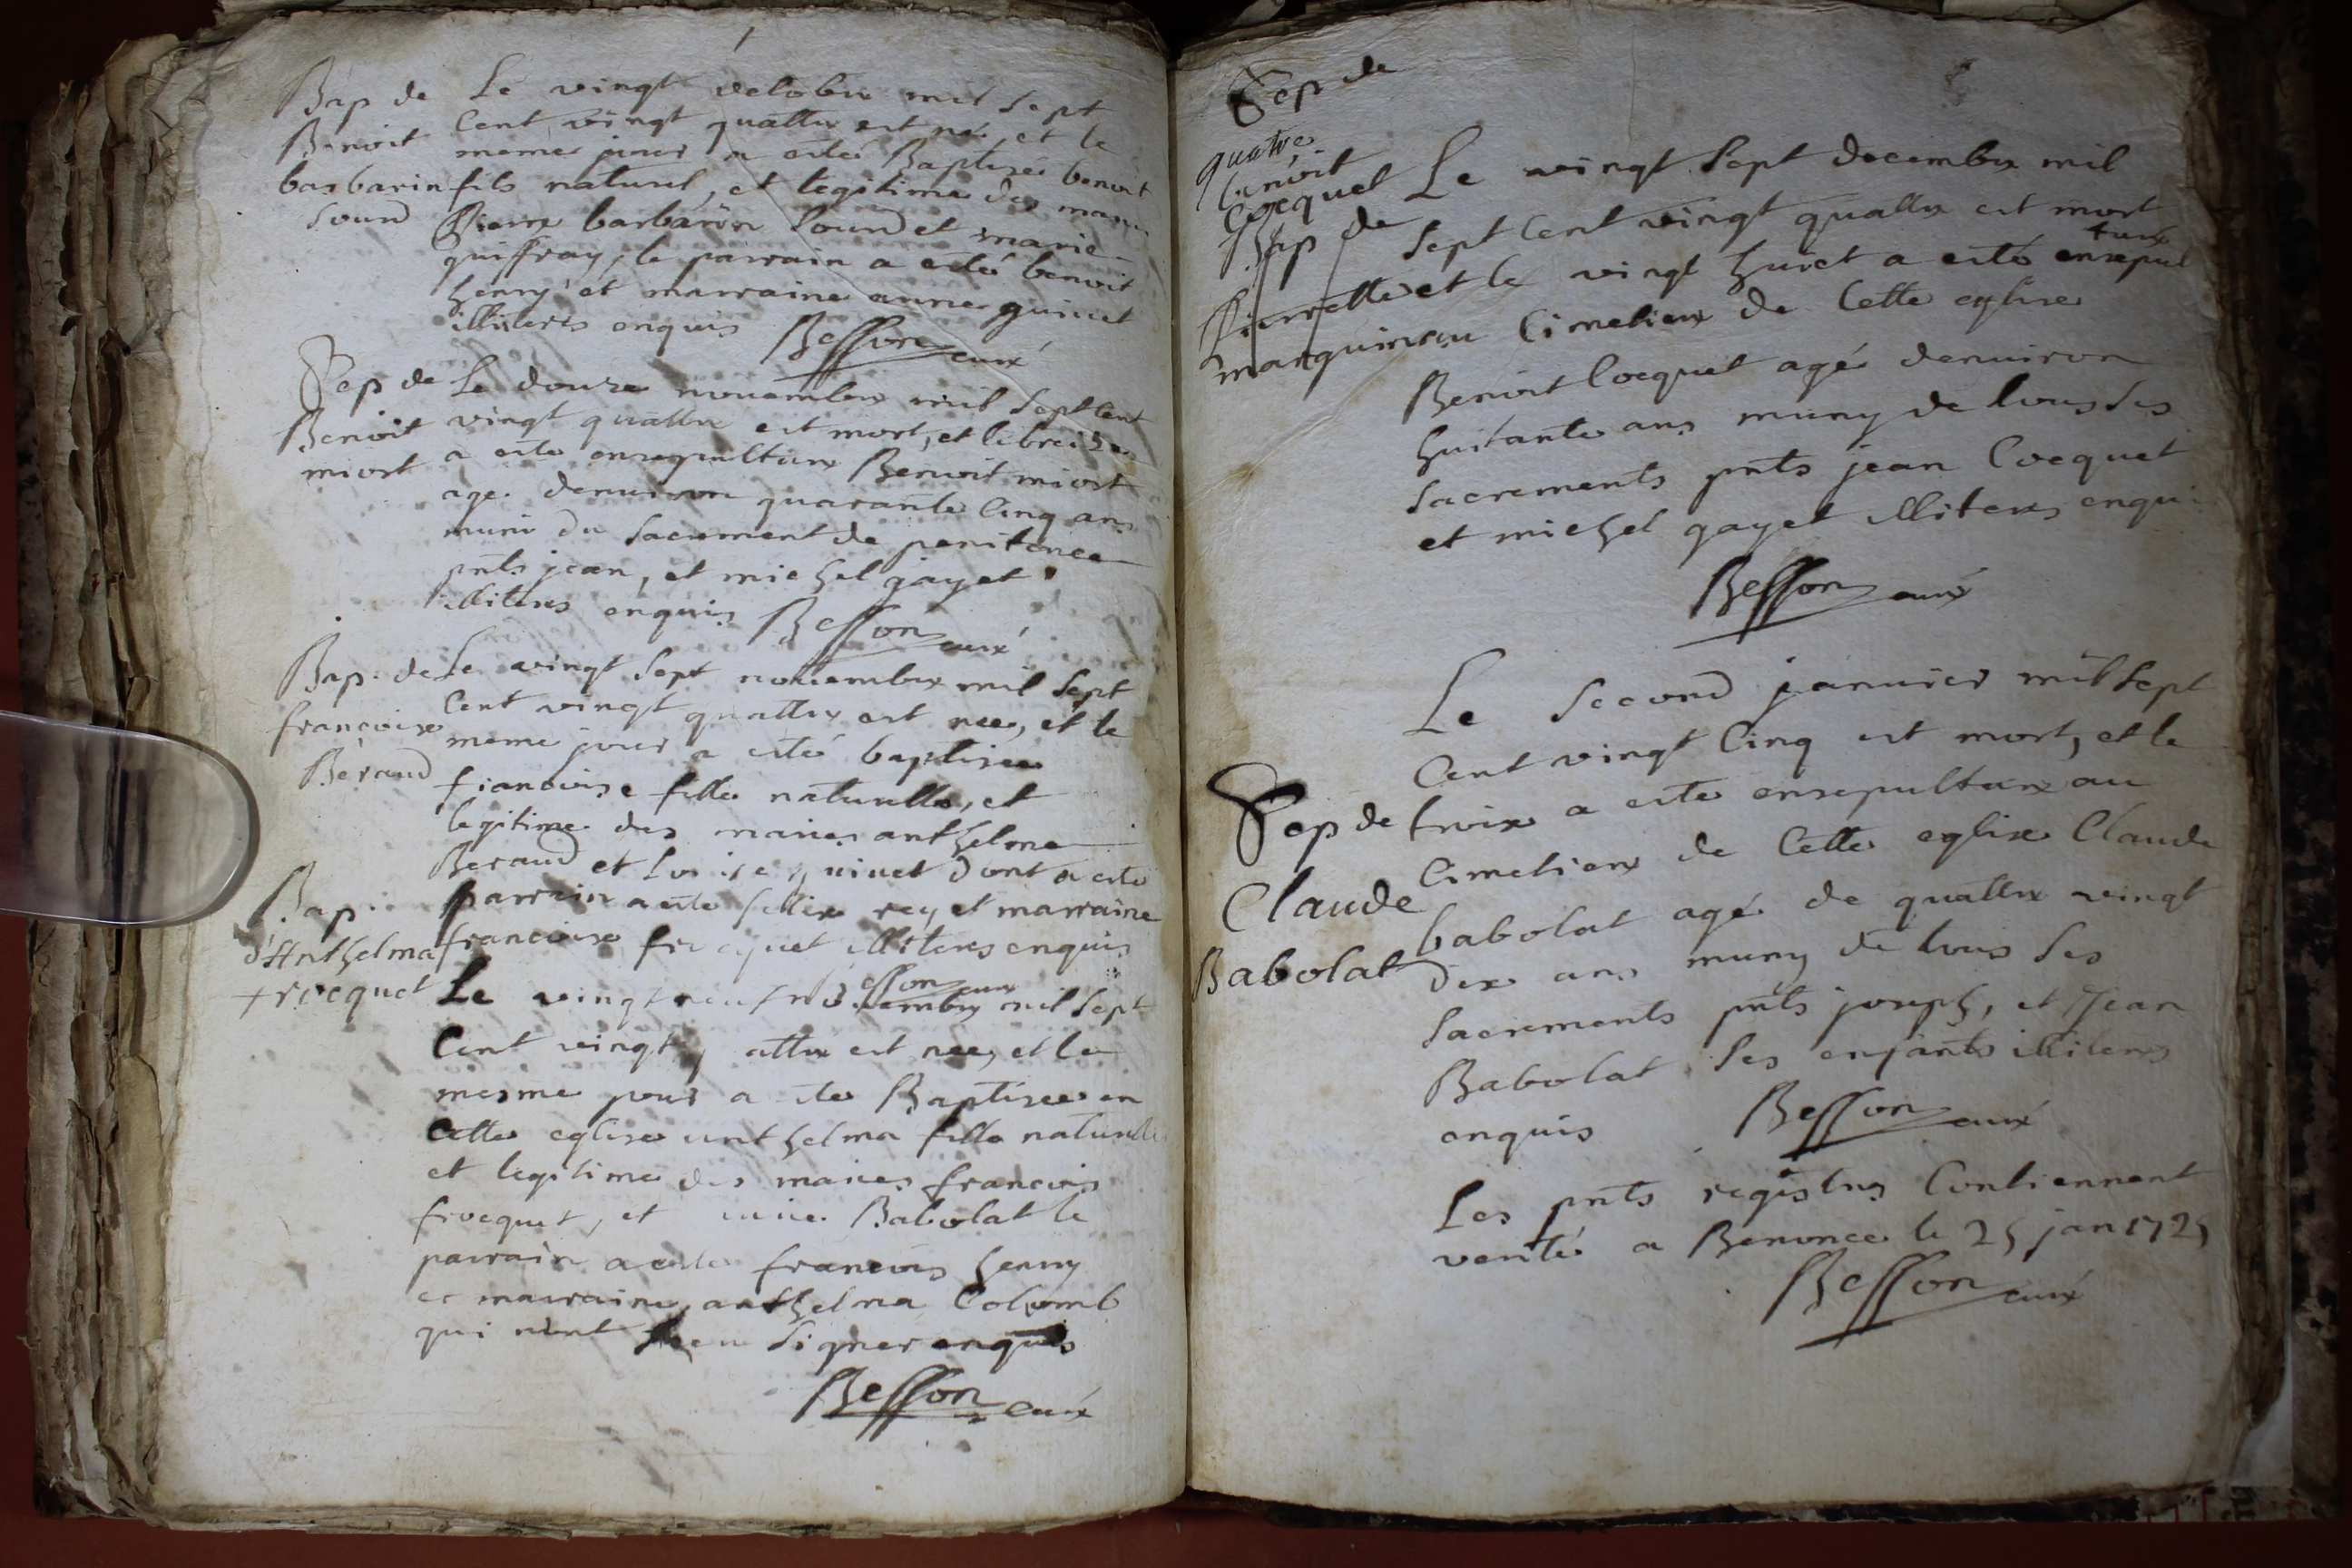 Bap de
Benoit
barbarin
Sourd
Le vingt octobre mil sept
Cent vingt quattre est né et le
meme jour a esté Baptisé benoit
fils naturel, et legitime des maries
Pierre barbarin Sourd et marie
guiffray, le parrain a esté benoit
henry et marraine anne guinet
illiteres enquis Besson curé
Sep de
Benoit
miort
Le douze novembre mil Sept Cent
vingt quattre est mort, et le treize
a esté ensepulture Benoit miort
agé denuiron quarante Cinq ans
muni du Sacrement de penitence
pnts jean, et michel gayet
illiteres enquis Besson curé
Bap. de
francoise
Beraud
Le vingt Sept novembre mil Sept
Cent vingt quattre est nee, et le
meme jour a esté baptisee
francoise fille naturelle, et
legitime des maries anthelme
Beraud et Louise guinet dont a esté
parrain a esté felix rey et marraine
francoise frocquet illiteres enquis
Besson curé
Bap
d'Anthelma
frocquet
Le vingt neuf novembre mil Sept
Cent vingt quattre est nee, et le
mesme jour a esté Baptisee en
Cette eglise anthelma fille naturelle
et legitime des maries francois
frocquet, et Babolat le
parrain a esté francois henry
et marraine anthelma Colomb
qui n'ont sceu Signer enquis
Besson curé
Sep de
quatre
benoit
Cocquet
Bap de
Pierrette
manguin
Le vingt Sept decembre mil
Sept Cent vingt quattre est mort
et le vingt huict a esté ensepul
ture
au Cimetiere de Cette eglise
Benoit Cocquet agé denuiron
huitante ans muny de tous Ses
Sacrements pnts jean Cocquet
et michel gayet illiteres enquis
Besson curé
Sep de
Claude
Babolat
Le Second januier mil Sept
Cent vingt Cinq est mort, et le
troix a esté ensepulture au
Cimetiere de Cette eglise Claude
babolat agé de quattre vingt
dix ans muny de tous Ses
Sacrements pnts joseph, et Jean
Babolat Ses enfants illiteres
enquis Besson curé
Les pnts registres Contiennent
verité a Benonce le 25 jan 1725
Besson curé